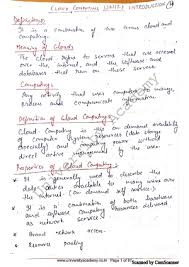 CLOUD COMPUTING UNIT-1 INTRODUCTION
Definition:
It is a combination of two terms cloud and
Computing.
Meaning of Cloud:
The cloud refers to servers that are accessed
over the internet, and the software and
databases that run on these servers
Computing:
Any activity that uses computers to manage,
process and communicate information.
Definition of Cloud Computing:
Cloud Computing is the on demand availability
of computer system resources (data storage
especially) and computing power without
direct active management by the user.
Properties of Cloud Computing:
It is generally used to describe the
data centers available to many users over
the internet (on demand self service)
It is a combination of both hardware
and software computing resources delivered
as network service.
Broad network access.
Resource pooling
www.universityacademy.in Page 1 of
Scanned by CamScanner